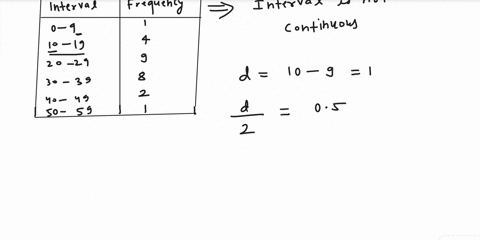 Interval Frequency
0-9 1
10-19 4
20-29 9
30-39 8
40-49 2
50-59 1
⇒ Interval is not
continuous
d = 10 - 9 = 1
d/2 = 0.5